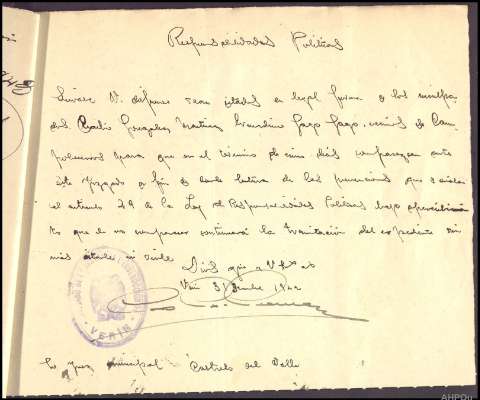 Responsabilidades Politicas
Sirvase V. disponer sean citados en legal forma a los inculpa-
dos, Gonzalez Martinez Fago Fago, vecinos de Cam-
pobecerros para que en el termino de cinco dias comparezcan ante
este Juzgado a fin de darle lectura de las prevenciones que señala
el articulo 49 de la Ley de Responsabilidades Politicas bajo apercibimien-
to que de no comparecer continuará la tramitación del expediente sin
más citarle ni oirle
Dios gue a V. as
VERIN
Sr Juez municipal Castrelo del Valle
AHPOu